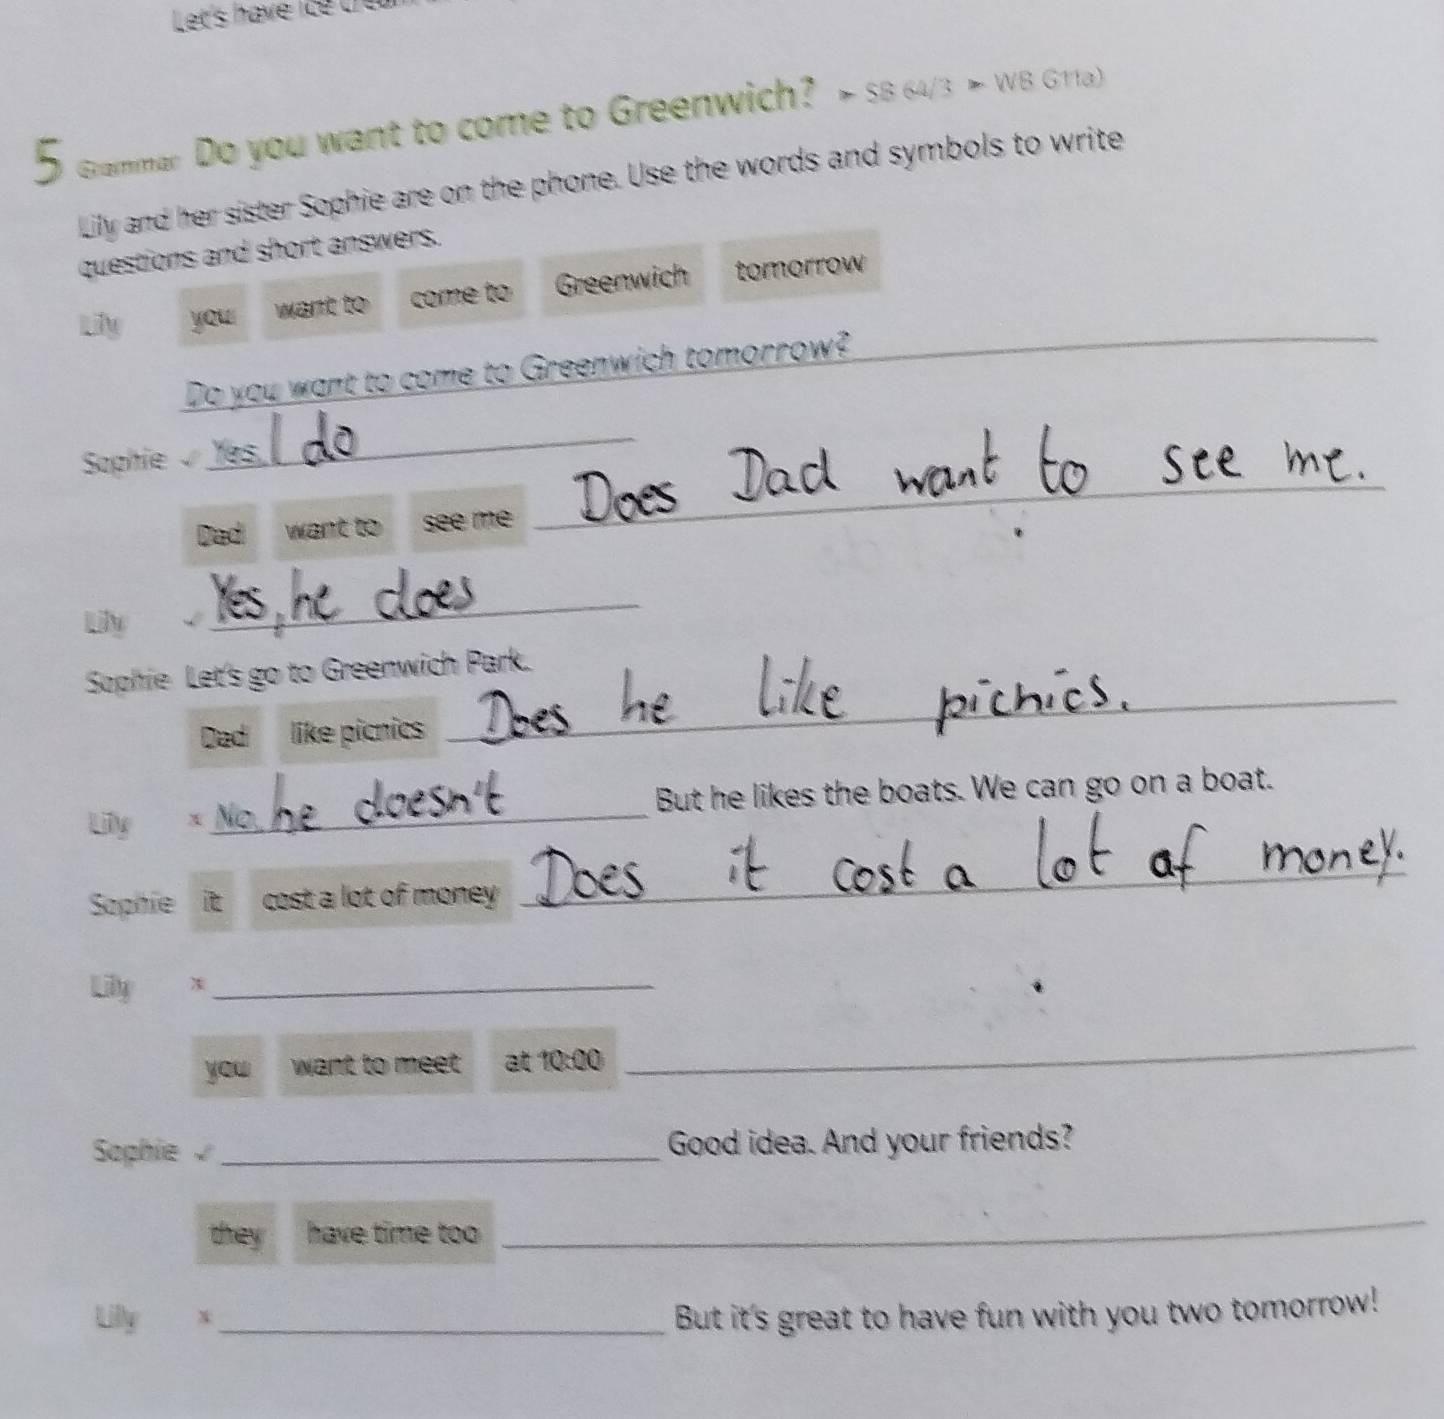 Let's have ice cream
5 Grammar Do you want to come to Greenwich? ► SB 64/3 ► WB G11a)
Lily and her sister Sophie are on the phone. Use the words and symbols to write
questions and short answers.
Lily you want to come to Greenwich tomorrow
Do you want to come to Greenwich tomorrow?
Sophie ✓ Yes, I do
Dad want to see me Does Dad want to see me.
Lily ✓ Yes, he does
Sophie Let's go to Greenwich Park.
Dad like picnics Does he like picnics.
Lily x No, he doesn't But he likes the boats. We can go on a boat.
Sophie it cost a lot of money Does it cost a lot af money.
Lily x
you want to meet at 10:00
Sophie ✓ Good idea. And your friends?
they have time too
Lily x But it's great to have fun with you two tomorrow!